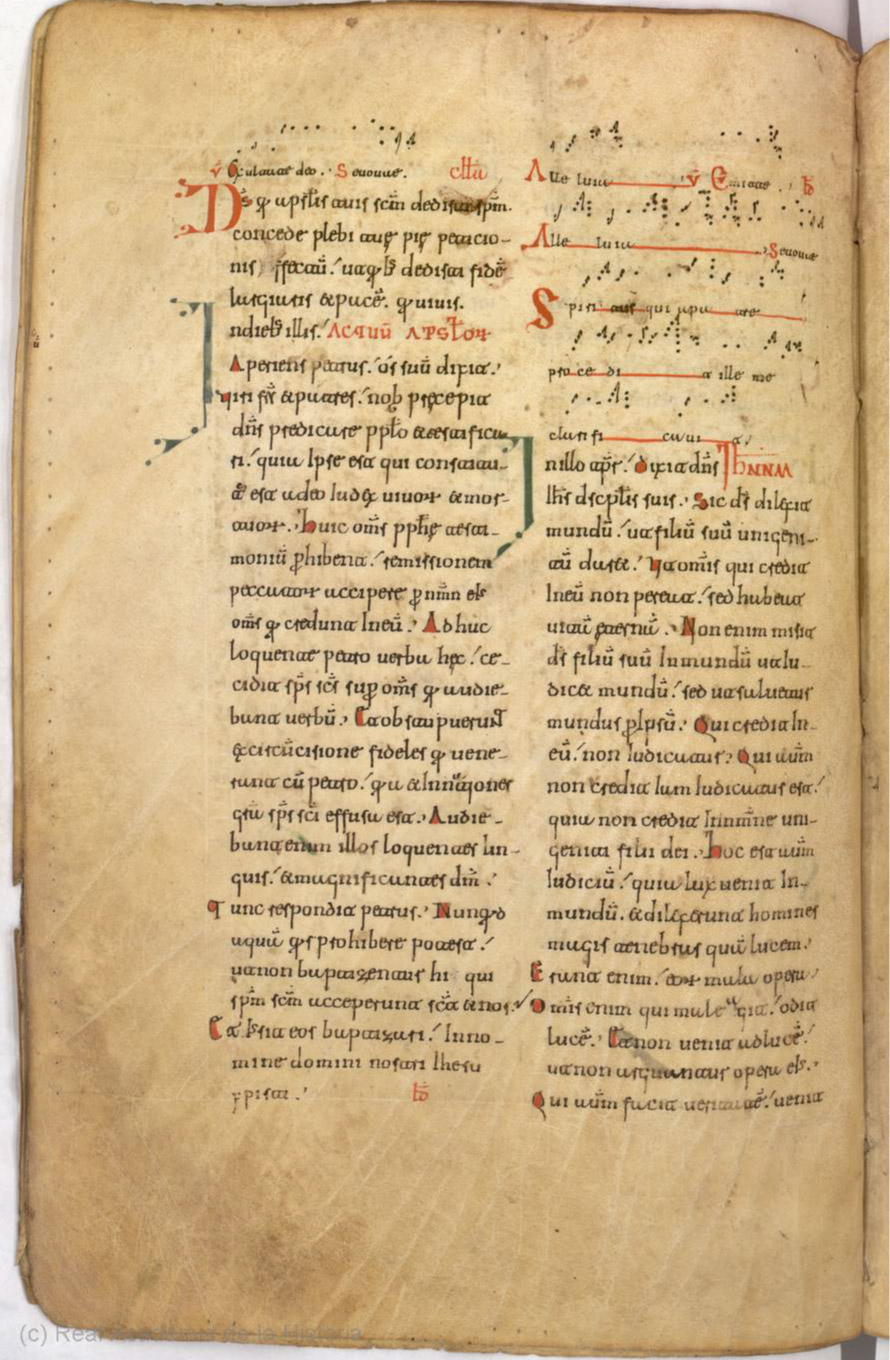 v̄ Exultate deo. Seuouae. cłta
Ds̄ q̄ apsłis tuis scm̄ dedisti spm̄.
concede plebi tuę pię peticio-
nis effectū. ut q̄b; dedisti fidē
largiaris & pacē. q uiuis.
Indieb; illis. ACTUŪ APSŁOR
Aperiens petrus. os suū dixit.
Uiri fr̄s & patres. nob̄ pręcepit
dn̄s predicare ppło & testifica-
ri. quia Ipse est qui constitu-
t̄ est adeo Iudex uiuor & mor-
tuor. Huic om̄s pph̄ę testi-
moniū phibent. remissionem
peccator accipere p nm̄n ei;
om̄s q credunt Ineū. Adhuc
loquente petro uerba hęc. ce-
cidit sps̄ scs̄ sup om̄s q audie-
bant uerbū. Et obstupuerunt
excircūcisione fideles q uene-
rant cū petro. q a & Innationes
gr̄a sps̄ scī effusa est. Audie-
bant enim illos loquentes lin-
guis. & magnificantes dm̄.
Tunc respondit petrus. Nunqd
aquā qs prohibere potest.
ut non baptizentur hi qui
spm̄ scm̄ acceperunt sic̄ & nos.
Et Iussit eos baptizari. Inno-
mine domini nostri Ihesu
xpisti.
Alle luia v̄ Emitte.
Alle luia Seuouae
Spiri tus qui a pa tre
pro ce di t ille me
clari fi ca ui t.
Inillo tp̄r. Dixit dn̄s IOHANNM
Ih̄s dscpłis suis. Sic ds̄ dilexit
mundū. ut filiū suū unigeni-
tū daret. Ut om̄is qui credit
Ineū non pereat. sed habeat
uitā eternā. Non enim misit
ds̄ filiū suū Inmundū utiu-
dicet mundū. sed ut saluetur
mundus p Ipsū. Qui credit In-
eū. non Iudicatur. Qui aūm
non credit Iam Iudicatus est.
quia non credit Innmn̄e uni-
geniti filii dei. Hoc est aūm
Iudiciū. quia lux uenit In-
mundū. & dilexerunt homines
magis tenebras quā lucem.
Erant enim. eor mala opera
Omis enim qui male agit. odit
lucē. Et non uenit adlucē.
ut non arguantur opera ei;.
Qui aūm facit ueritatē. uenit